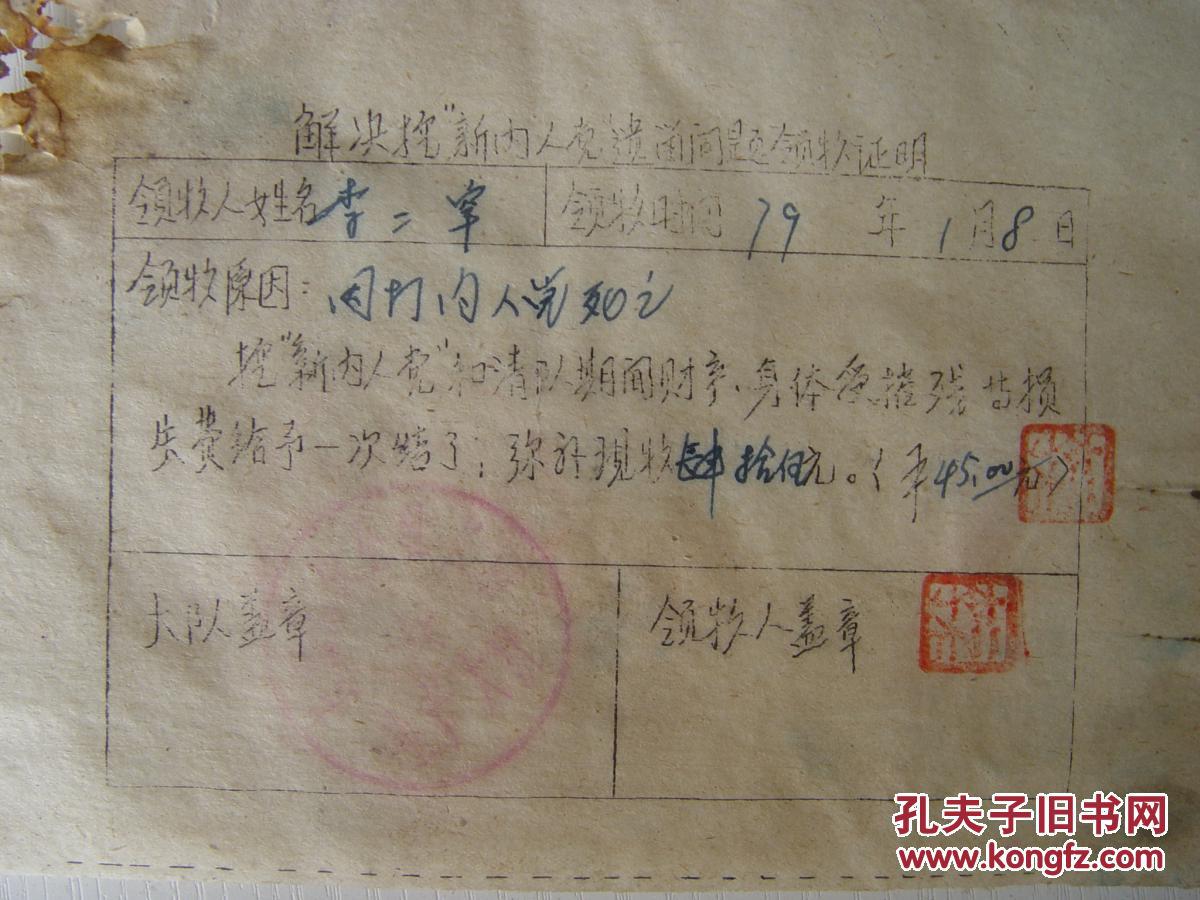 解决挖"新内人党"遗留问题领收证明
领收人姓名 李二军 领收时间 79 年 1 月 8 日
领收原因: 因打内人党死亡
挖"新内人党"和清队期间财产、身体受摧残与损
失费给予一次结了;弥补现收肆拾伍元。(￥45.00元)
大队盖章 领收人盖章
孔夫子旧书网
www.kongfz.com